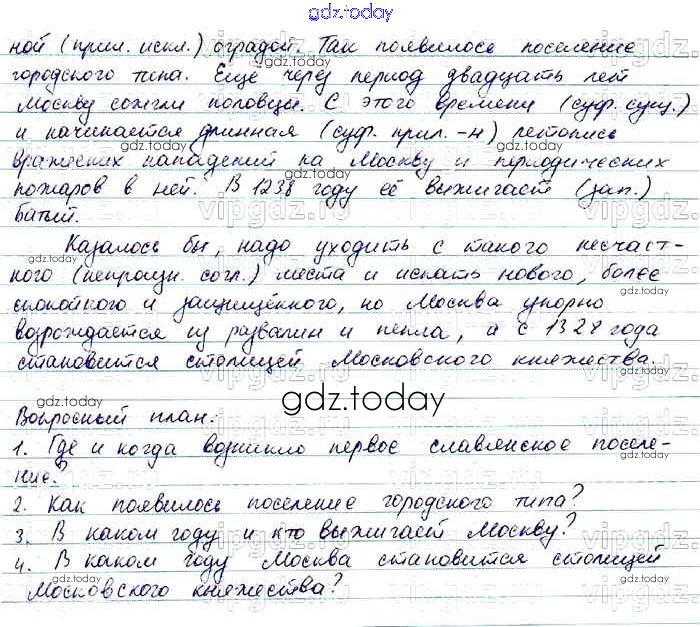 gdz.today
ной (прил. искл.) оградой. Так появилось поселение
городского типа. Ещё через период двадцать лет
Москву сожгли половцы. С этого времени (суф. сущ.)
и начинается длинная (суф. прил. -н) летопись
вражеских нападений на Москву и периодических
пожаров в ней. В 1238 году её выжигает (зап.)
Батый.
Казалось бы, надо уходить с такого несчаст-
ного (непроизн. согл.) места и искать нового, более
спокойного и защищённого, но Москва упорно
возрождается из развалин и пепла, а с 1328 года
становится столицей Московского княжества.
gdz.today
Вопросный план:
1. Где и когда возникло первое славянское поселе-
ние?
2. Как появилось поселение городского типа?
3. В каком году и кто выжигает Москву?
4. В каком году Москва становится столицей
Московского княжества?